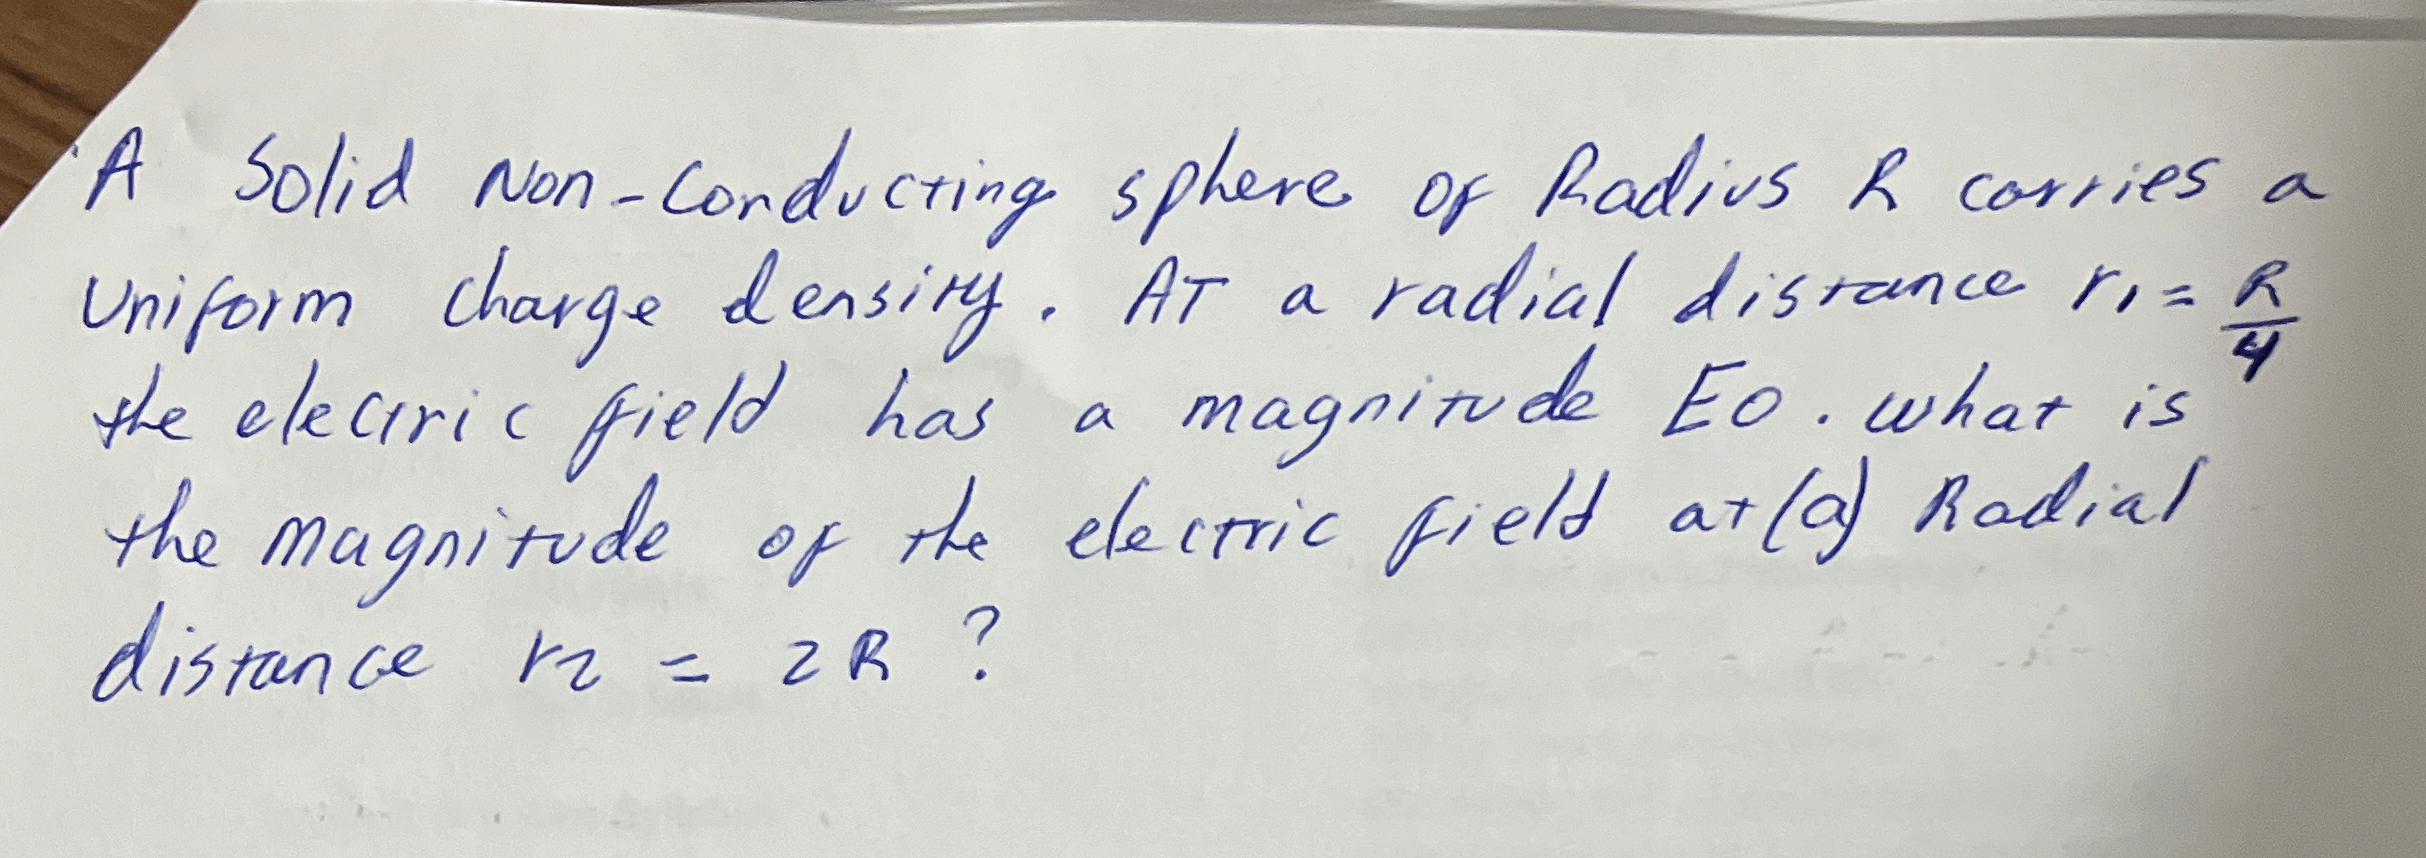 A Solid Non-Conducting sphere of Radius R carries a
Uniform charge density. AT a radial distance r1 = R/4
the electric field has a magnitude E0. what is
the magnitude of the electric field at (a) Radial
distance r2 = 2R ?